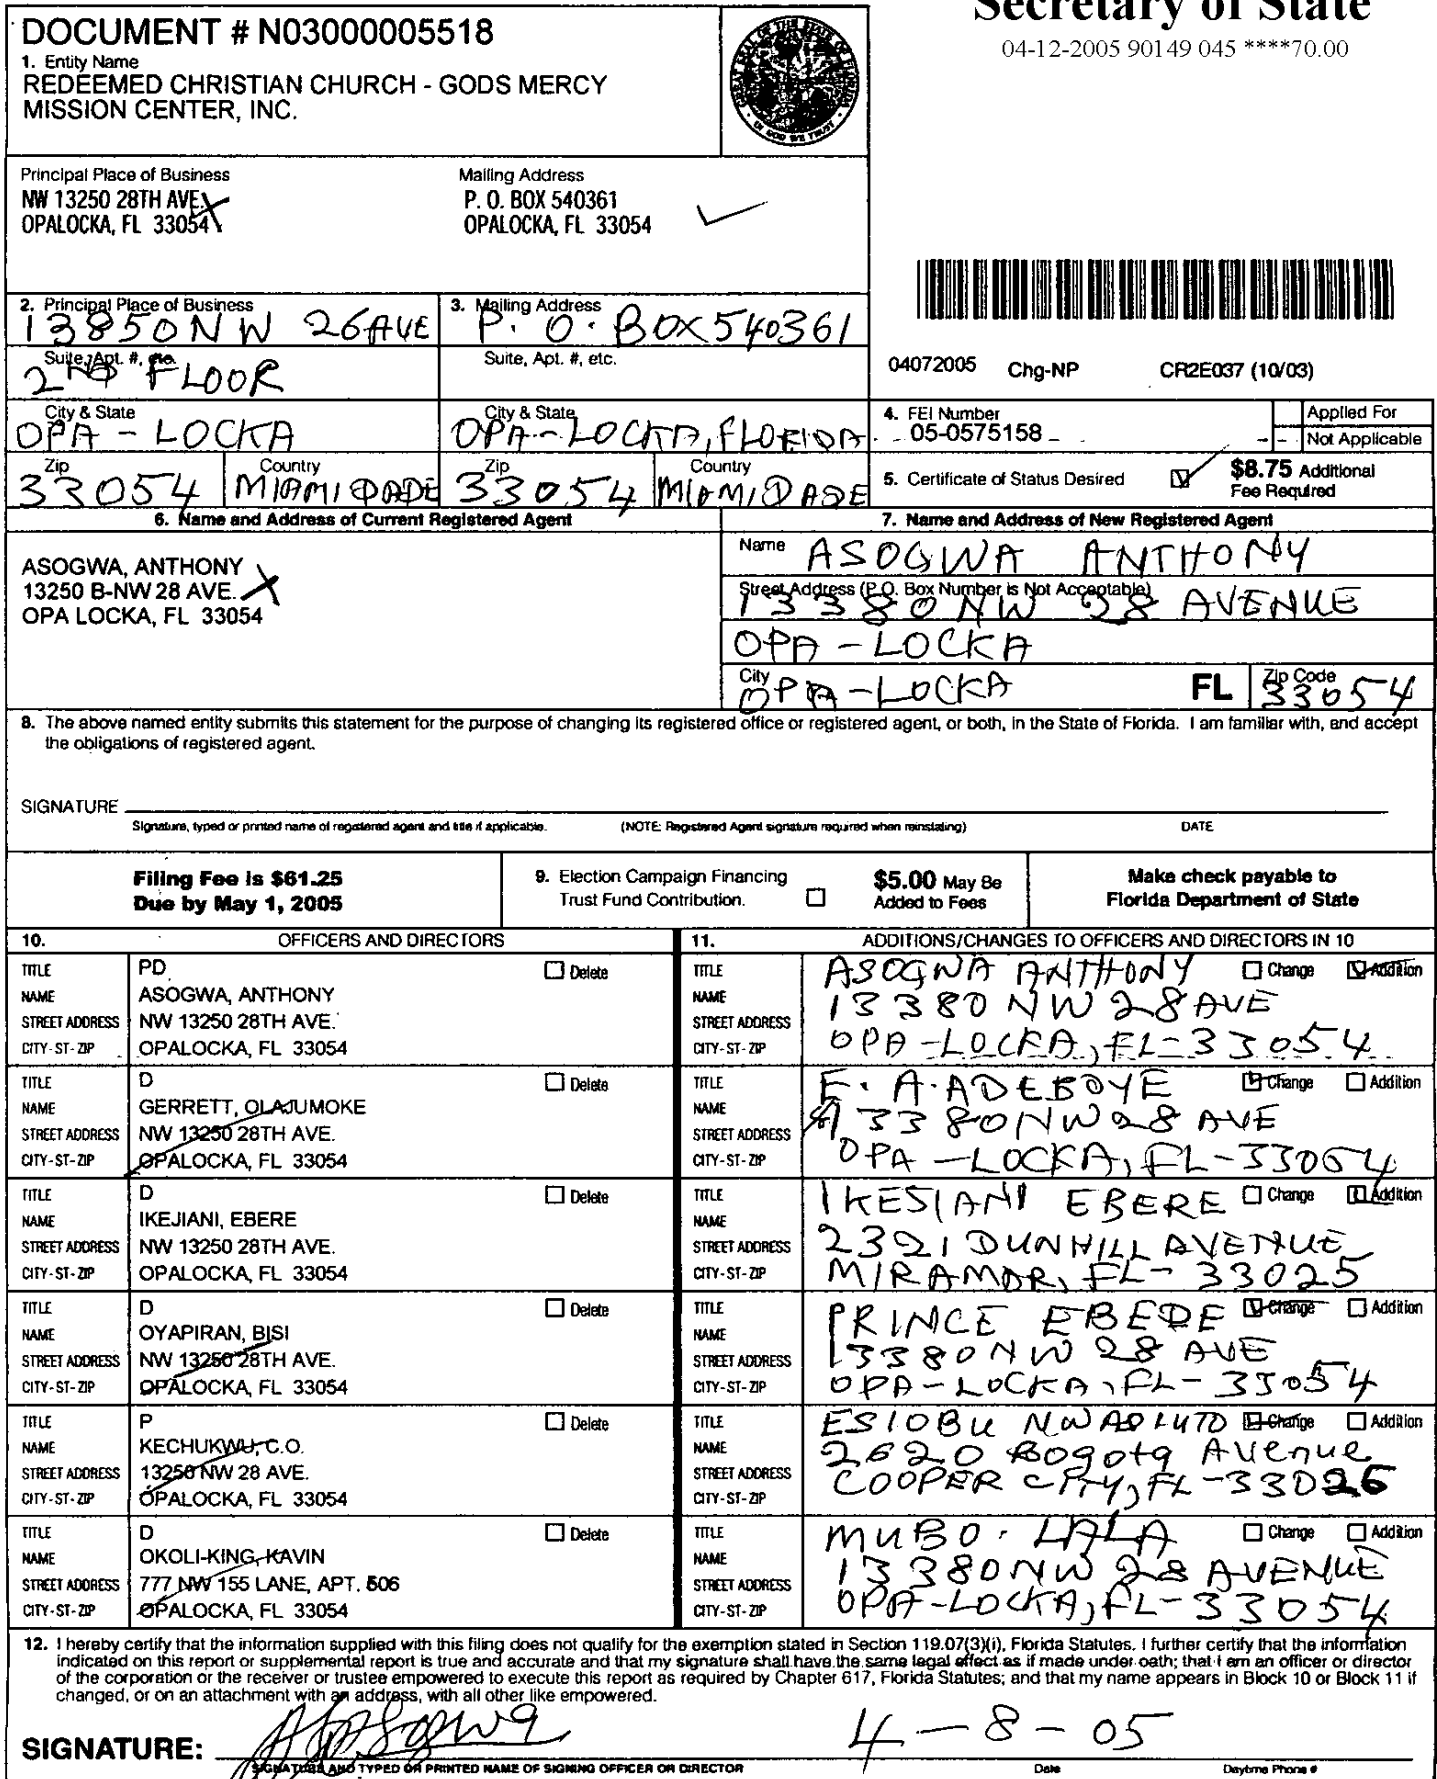 Secretary of State
04-12-2005 90149 045 ****70.00
DOCUMENT # N03000005518
1. Entity Name
REDEEMED CHRISTIAN CHURCH - GODS MERCY
MISSION CENTER, INC.
Principal Place of Business
NW 13250 28TH AVE.
OPALOCKA, FL 33054
Mailing Address
P. O. BOX 540361
OPALOCKA, FL 33054
2. Principal Place of Business
13850 NW 26 AVE
3. Mailing Address
P. O. BOX 540361
Suite, Apt. #, etc.
2ND FLOOR
Suite, Apt. #, etc.
City & State
OPA - LOCKA
City & State
OPA - LOCKA, FLORIDA
Zip
33054
Country
MIAMI DADE
Zip
33054
Country
MIAMI DADE
04072005 Chg-NP CR2E037 (10/03)
4. FEI Number
05-0575158
Applied For
Not Applicable
5. Certificate of Status Desired
$8.75 Additional
Fee Required
6. Name and Address of Current Registered Agent
ASOGWA, ANTHONY
13250 B-NW 28 AVE.
OPA LOCKA, FL 33054
7. Name and Address of New Registered Agent
Name ASOGWA ANTHONY
Street Address (P.O. Box Number is Not Acceptable)
13380 NW 28 AVENUE
OPA - LOCKA
City
OPA - LOCKA FL
Zip Code
33054
8. The above named entity submits this statement for the purpose of changing its registered office or registered agent, or both, in the State of Florida. I am familiar with, and accept
the obligations of registered agent.
SIGNATURE
Signature, typed or printed name of registered agent and title if applicable. (NOTE: Registered Agent signature required when reinstating) DATE
Filing Fee is $61.25
Due by May 1, 2005
9. Election Campaign Financing
Trust Fund Contribution.
$5.00 May Be
Added to Fees
Make check payable to
Florida Department of State
10. OFFICERS AND DIRECTORS
TITLE PD Delete
NAME ASOGWA, ANTHONY
STREET ADDRESS NW 13250 28TH AVE.
CITY-ST-ZIP OPALOCKA, FL 33054
TITLE D Delete
NAME GERRETT, OLAJUMOKE
STREET ADDRESS NW 13250 28TH AVE.
CITY-ST-ZIP OPALOCKA, FL 33054
TITLE D Delete
NAME IKEJIANI, EBERE
STREET ADDRESS NW 13250 28TH AVE.
CITY-ST-ZIP OPALOCKA, FL 33054
TITLE D Delete
NAME OYAPIRAN, BISI
STREET ADDRESS NW 13250 28TH AVE.
CITY-ST-ZIP OPALOCKA, FL 33054
TITLE P Delete
NAME KECHUKWU, C.O.
STREET ADDRESS 13250 NW 28 AVE.
CITY-ST-ZIP OPALOCKA, FL 33054
TITLE D Delete
NAME OKOLI-KING, KAVIN
STREET ADDRESS 777 NW 155 LANE, APT. 506
CITY-ST-ZIP OPALOCKA, FL 33054
11. ADDITIONS/CHANGES TO OFFICERS AND DIRECTORS IN 10
TITLE ASOGWA ANTHONY Change Addition
NAME 13380 NW 28 AVE
STREET ADDRESS
CITY-ST-ZIP OPA-LOCKA, FL-33054
TITLE E. A. ADEBOYE Change Addition
NAME 13380 NW 28 AVE
STREET ADDRESS
CITY-ST-ZIP OPA-LOCKA, FL-33054
TITLE IKESIANI EBERE Change Addition
NAME
STREET ADDRESS 2321 DUNHILL AVENUE
CITY-ST-ZIP MIRAMAR, FL-33025
TITLE PRINCE EBERE Change Addition
NAME
STREET ADDRESS 13380 NW 28 AVE
CITY-ST-ZIP OPA-LOCKA, FL-33054
TITLE ESIOBU Change Addition
NAME 2620 Bogota Avenue
STREET ADDRESS COOPER CITY, FL-33026
CITY-ST-ZIP
TITLE MUBO. LALA Change Addition
NAME
STREET ADDRESS 13380 NW 28 AVENUE
CITY-ST-ZIP OPA-LOCKA, FL-33054
12. I hereby certify that the information supplied with this filing does not qualify for the exemption stated in Section 119.07(3)(i), Florida Statutes. I further certify that the information
indicated on this report or supplemental report is true and accurate and that my signature shall have the same legal effect as if made under oath; that I am an officer or director
of the corporation or the receiver or trustee empowered to execute this report as required by Chapter 617, Florida Statutes; and that my name appears in Block 10 or Block 11 if
changed, or on an attachment with an address, with all other like empowered.
SIGNATURE: 4-8-05
SIGNATURE AND TYPED OR PRINTED NAME OF SIGNING OFFICER OR DIRECTOR Date Daytime Phone #